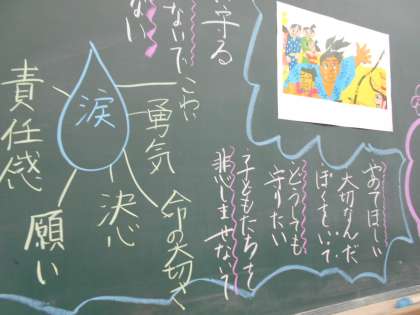 やめてほしい
大切なんだ
どうしても
守りたい
子どもたちを
悲しませないで
守る
ないで
ない
こわい
勇気
命の大切さ
決心
涙
願い
責任感